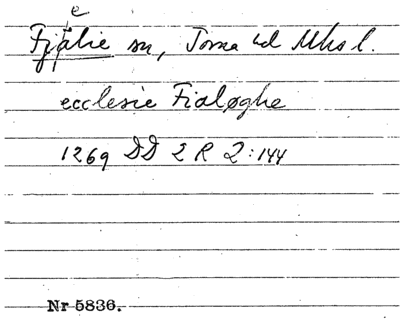 e
Fjälie sn, Torna hd Mhs l.
ecclesie Fialøghe
1269 DD 2 R 2:144
Nr 5836.